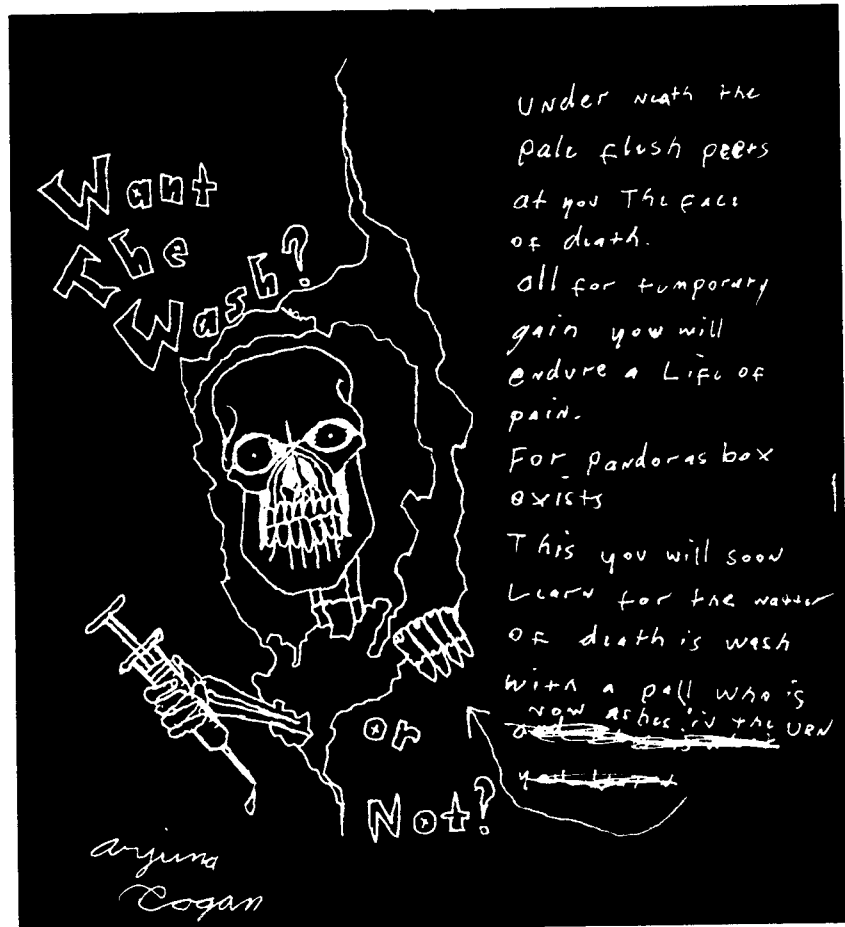 Want
The
Wash?
Under neath the
pale flesh peers
at you The Face
of death.
all for temporary
gain you will
endure a Life of
pain.
For pandoras box
exists
This you will soon
Learn for the watter
of death is wash
with a pall who is
now ashes in the URN
or
Not?
arjuna
Cogan